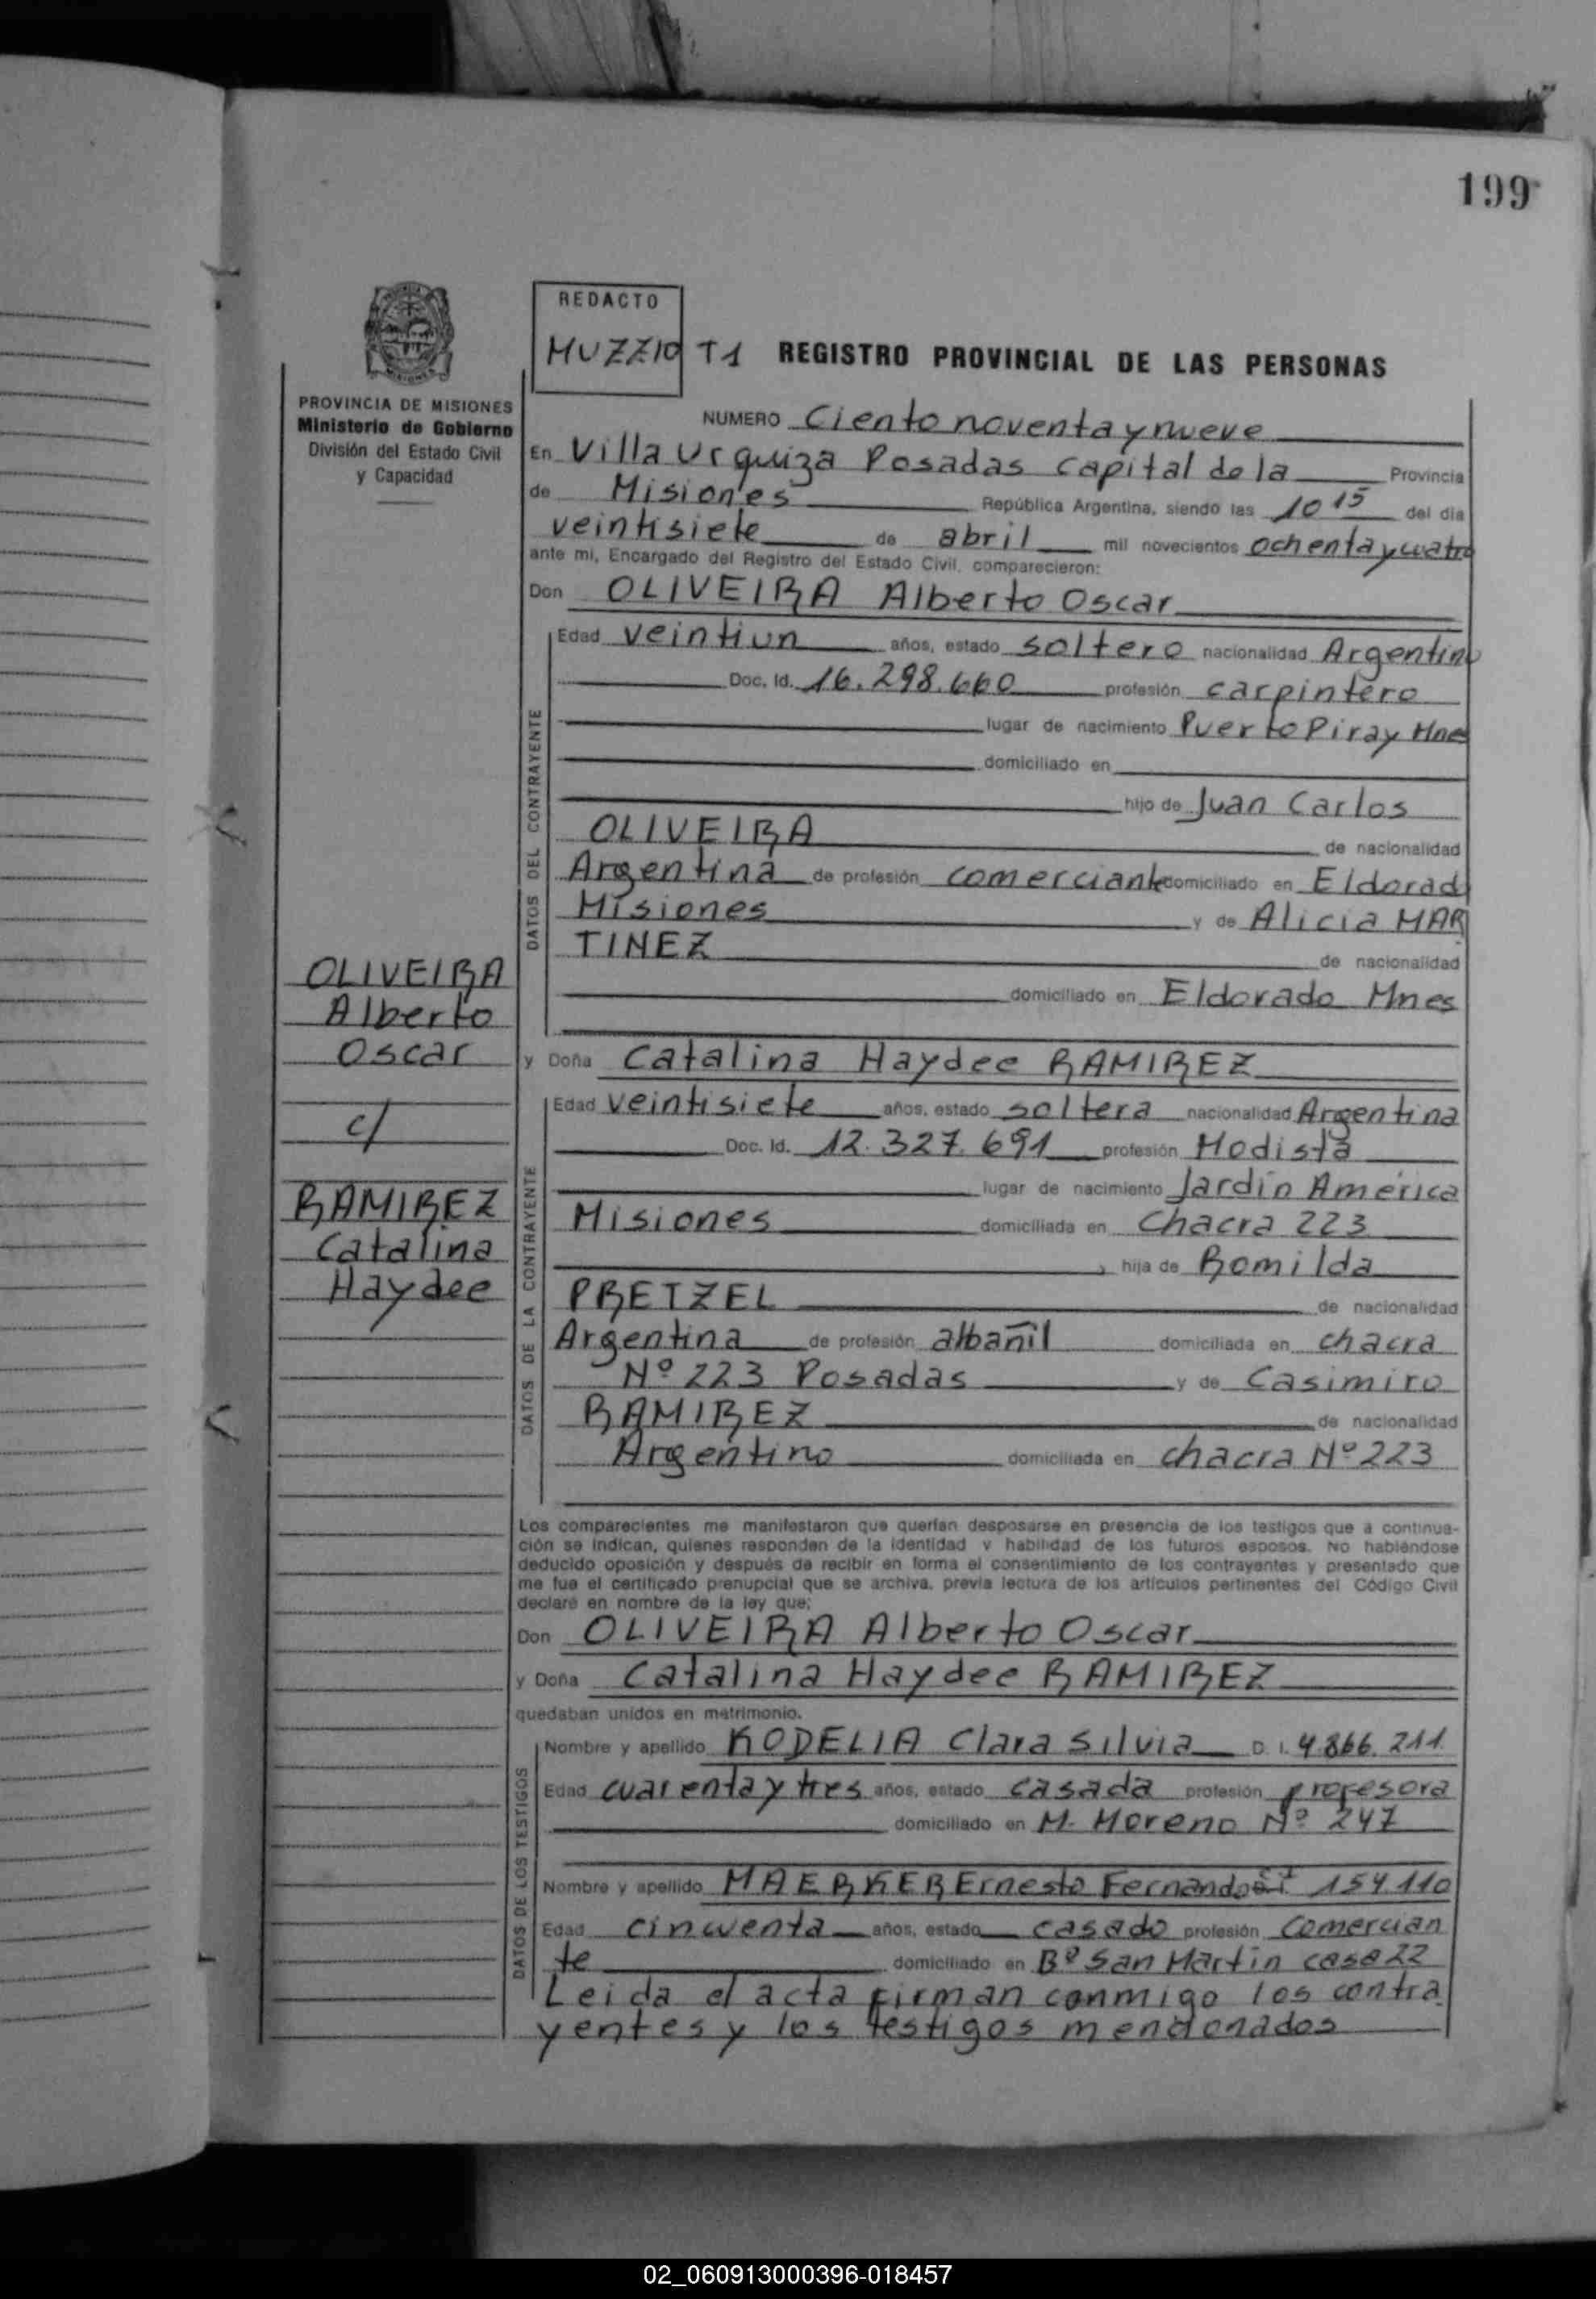 199
REDACTO
MUZZIO T1 REGISTRO PROVINCIAL DE LAS PERSONAS
PROVINCIA DE MISIONES
Ministerio de Gobierno
División del Estado Civil
y Capacidad
NUMERO Ciento noventa y nueve
En Villa Urquiza Posadas capital de la Provincia
de Misiones República Argentina, siendo las 10 15 del día
veintisiete de abril mil novecientos ochenta y cuatro
ante mi, Encargado del Registro del Estado Civil, comparecieron:
Don OLIVEIRA Alberto Oscar
DATOS DEL CONTRAYENTE
Edad veintiun años, estado soltero nacionalidad Argentino
Doc. Id. 16.298.660 profesión carpintero
lugar de nacimiento Puerto Piray Mnes
domiciliado en
hijo de Juan Carlos
OLIVEIRA de nacionalidad
Argentina de profesión comerciante domiciliado en Eldorado
Misiones y de Alicia MAR
TINEZ de nacionalidad
domiciliado en Eldorado Mnes
OLIVEIRA
Alberto
Oscar
c/
RAMIREZ
Catalina
Haydee
y Doña Catalina Haydee RAMIREZ
DATOS DE LA CONTRAYENTE
Edad veintisiete años, estado soltera nacionalidad Argentina
Doc. Id. 12.327.691 profesión Modista
lugar de nacimiento Jardín América
Misiones domiciliada en chacra 223
hija de Romilda
PRETZEL de nacionalidad
Argentina de profesión albañil domiciliada en chacra
Nº 223 Posadas y de Casimiro
RAMIREZ de nacionalidad
Argentino domiciliada en chacra Nº 223
Los comparecientes me manifestaron que querían desposarse en presencia de los testigos que a continua-
ción se indican, quienes responden de la identidad y habilidad de los futuros esposos. No habiéndose
deducido oposición y después de recibir en forma el consentimiento de los contrayentes y presentado que
me fue el certificado prenupcial que se archiva, previa lectura de los artículos pertinentes del Código Civil
declaré en nombre de la ley que;
Don OLIVEIRA Alberto Oscar
y Doña Catalina Haydee RAMIREZ
quedaban unidos en matrimonio.
DATOS DE LOS TESTIGOS
Nombre y apellido KODELIA Clara Silvia D. I. 4.866.211
Edad cuarenta y tres años, estado casada profesión profesora
domiciliado en M. Moreno Nº 247
Nombre y apellido MAERKER Ernesto Fernando 154.110
Edad cincuenta años, estado casado profesión comercian
te domiciliado en Bº San Martín casa 22
Leida el acta firman conmigo los contra
yentes y los testigos mencionados
02_060913000396-018457